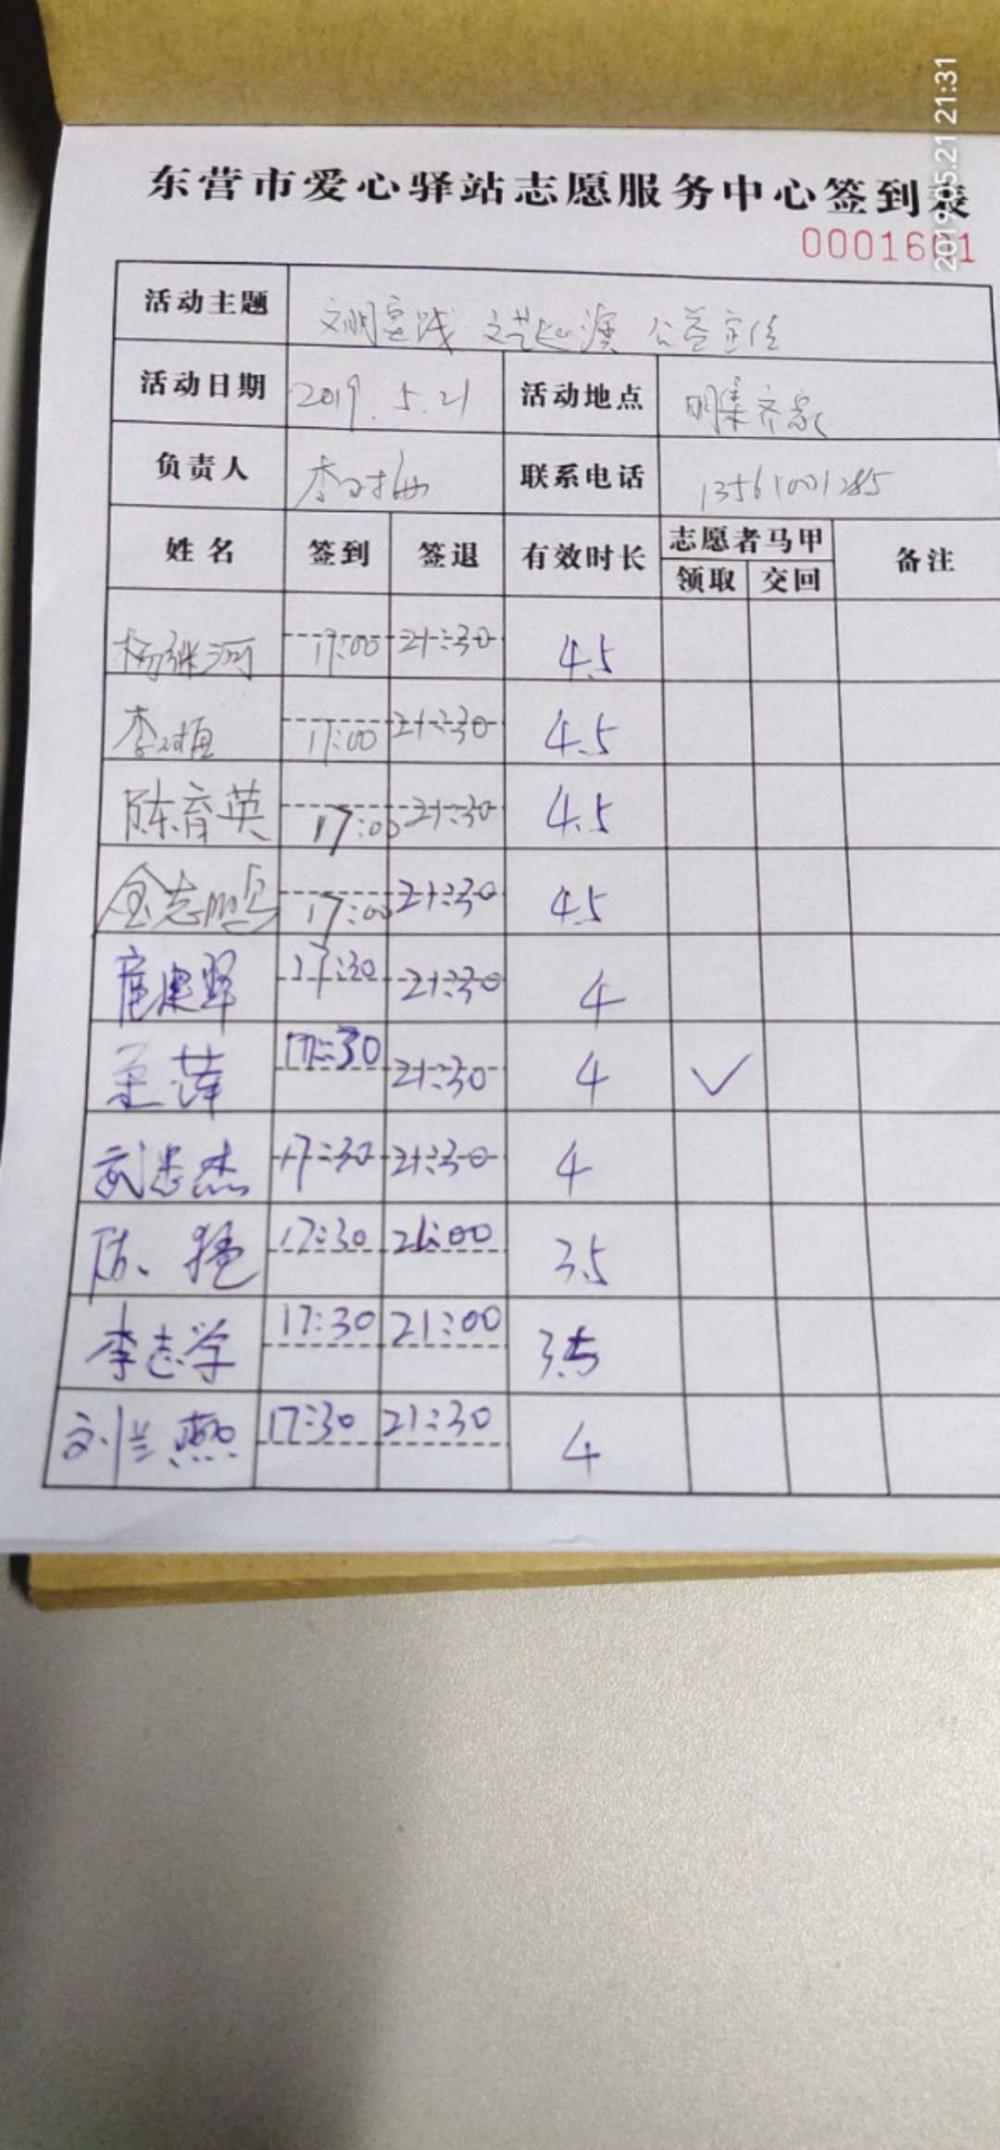 2019.05.21 21:31
东营市爱心驿站志愿服务中心签到表
活动主题 文明实践 文艺巡演 公益宣传
活动日期 2019.5.21 活动地点 明集齐家
负责人 联系电话 13561001285
姓名 签到 签退 有效时长 志愿者马甲 备注
领取 交回
杨继河 17:00 21:30 4.5
17:00 21:30 4.5
陈育英 17:00 21:30 4.5
金志鹏 17:00 21:30 4.5
17:30 21:30 4
17:30 21:30 4 ✓
武忠杰 17:30 21:30 4
陈猛 17:30 21:00 3.5
李志学 17:30 21:00 3.5
刘兰燕 17:30 21:30 4